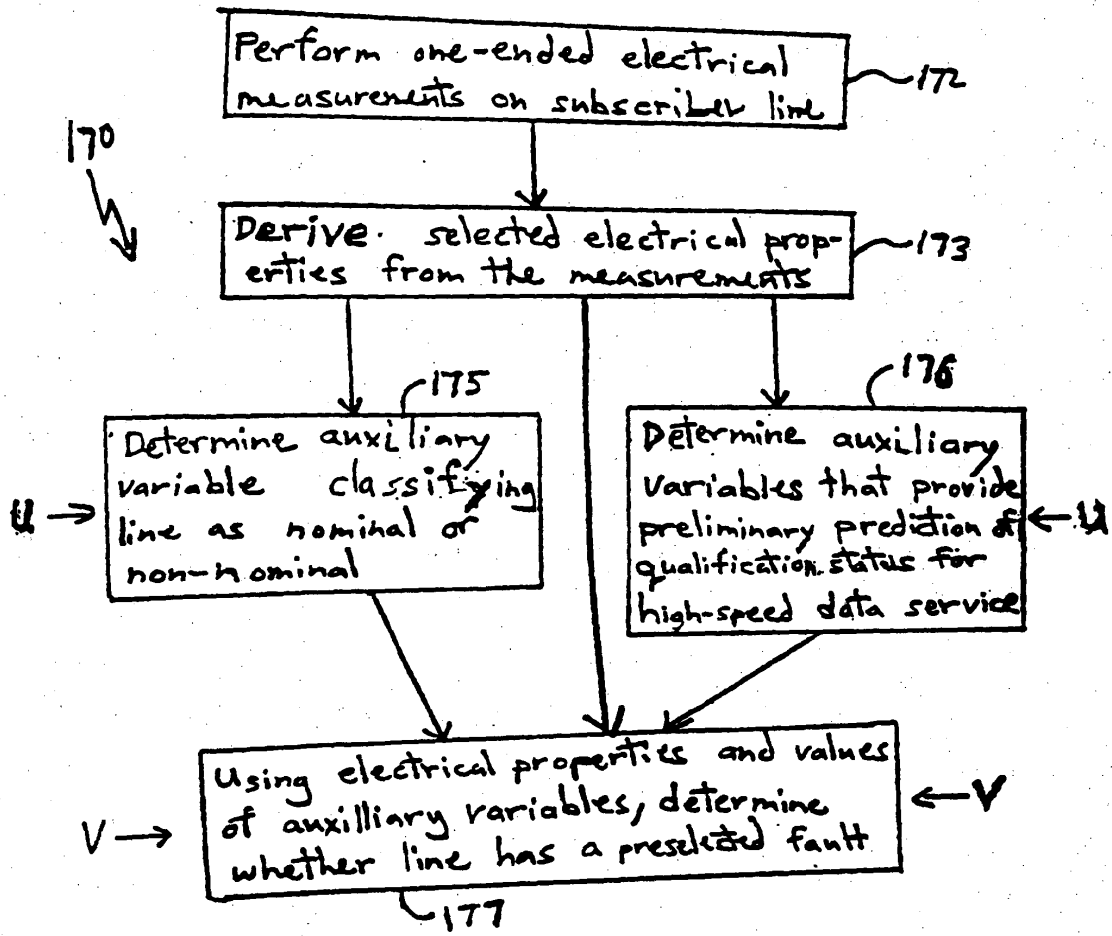 Perform one-ended electrical
measurements on subscriber line
172
170
Derive selected electrical prop-
erties from the measurements
173
175
176
Determine auxiliary
variable classifying
line as nominal or
non-nominal
U
Determine auxiliary
variables that provide
preliminary prediction of
qualification status for
high-speed data service
U
Using electrical properties and values
of auxilliary variables, determine
whether line has a preselected fault
V
V
177